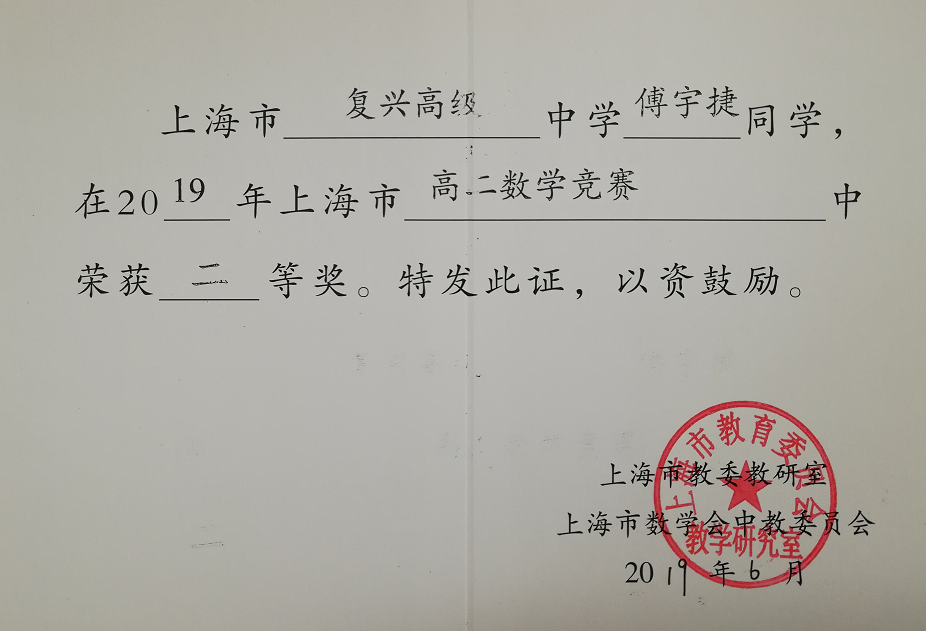 上海市复兴高级中学傅宇捷同学，
在2019年上海市高二数学竞赛中
荣获二等奖。特发此证，以资鼓励。
上海市教委教研室
上海市数学会中教委员会
2019年6月
上海市教育委员会
教学研究室